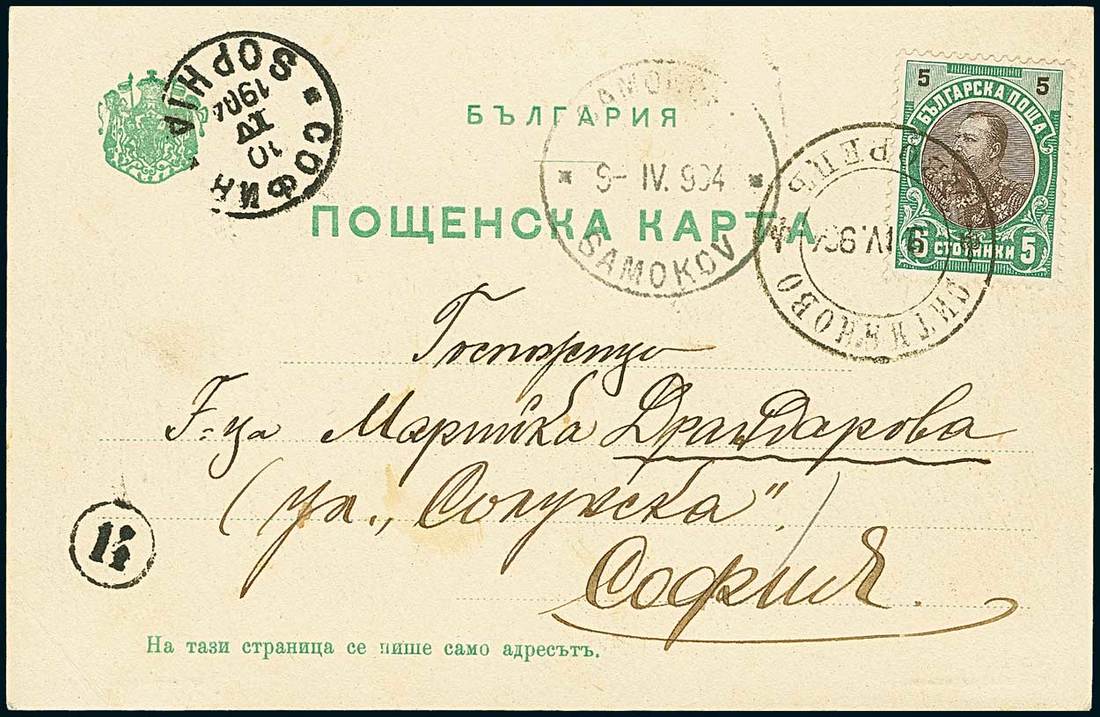 БЪЛГАРИЯ
ПОЩЕНСКА КАРТА
* СОФИЯ
SOPHIA
10
IV
1904
SAMOKOV
9- IV. 904
5 5
БЪЛГАРСКА ПОЩА
5 СТОТИНКИ 5
СИТНЯКОВО
IV. 904
Госпожица
Г-ца Марийка Драндарова
(ул. „Солунска“)
София
14
На тази страница се пише само адресътъ.